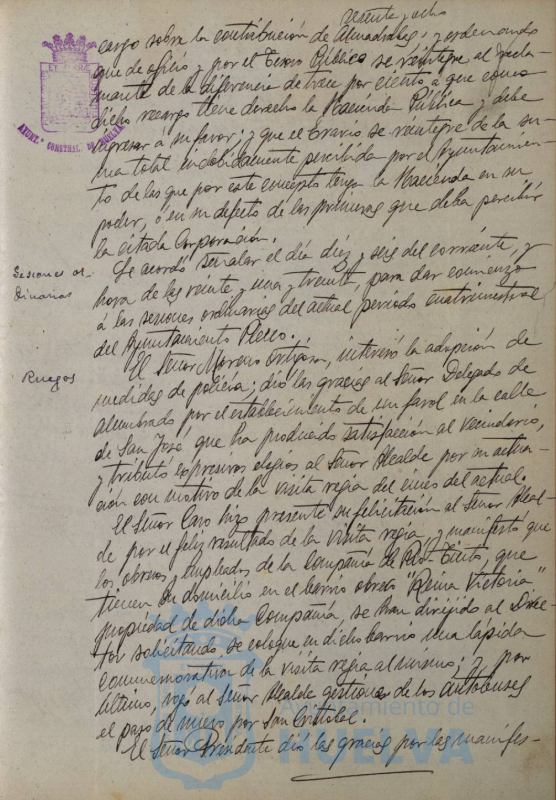 sesenta y ocho
cargo sobre la contribución de Almadrabas, y ordenando
que de oficio y por el Tesoro Público se reintegre al recla-
mante de la diferencia de trece por ciento a que como
dicho recargo tiene derecho la Hacienda Pública y debe
ingresar á su favor; y que el Erario se reintegre de la su-
ma total indebidamente percibida por el Ayuntamien-
to de las que por este concepto tenga la Hacienda en su
poder, ó en su defecto de las primeras que deba percibir
la citada Corporación.
Sesiones or-
dinarias
Se acordó señalar el día diez y seis del corriente, y
hora de las veinte y una y treinta, para dar comienzo
á las sesiones ordinarias del actual período cuatrimestral
del Ayuntamiento Pleno.
Ruegos
El Señor Moreno Ortigosa, interesó la adopción de
medidas de policía; dió las gracias al Señor Delegado de
Alumbrado por el establecimiento de un farol en la calle
de San José que ha producido satisfacción al vecindario,
y tributó expresivos elogios al Señor Alcalde por su actua-
ción con motivo de la visita regia del cinco del actual.
El Señor Caro hizo presente su felicitación al Señor Alcal-
de por el feliz resultado de la visita regia, y manifestó que
los obreros y empleados de la Compañía de Río-Tinto, que
tienen su domicilio en el barrio obrero "Reina Victoria"
propiedad de dicha Compañía, se han dirijido al Direc-
tor solicitando, se coloque en dicho barrio una lápida
conmemorativa de la visita regia al mismo; y, por
último, rogó al Señor Alcalde gestiones de los autobuses
el paso de nuevo por San Cristóbal.
El Señor Presidente dió las gracias por las manifes-
AYUNT. CONSTNAL. DE HUELVA
Ayuntamiento de
HUELVA